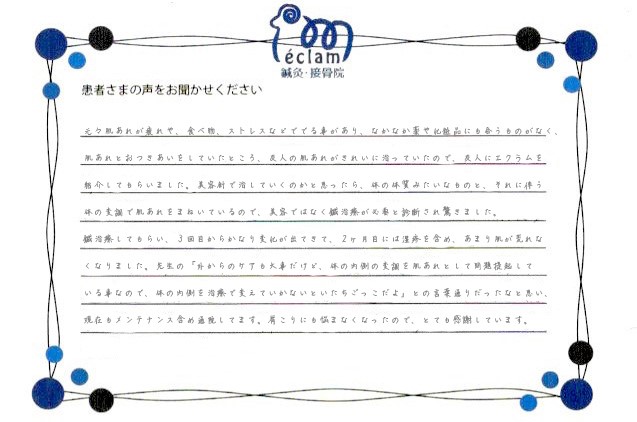 éclam
鍼灸・接骨院
患者さまの声をお聞かせください
元々肌あれが疲れや、食べ物、ストレスなどででる事があり、なかなか薬や化粧品にも合うものがなく、
肌あれとおつきあいをしていたところ、友人の肌あれがきれいに治っていたので、友人にエクラムを
紹介してもらいました。美容針で治していくのかと思ったら、体の体質みたいなものと、それに伴う
体の変調で肌あれをまねいているので、美容ではなく鍼治療が必要と診断され驚きました。
鍼治療してもらい、3回目からかなり変化が出てきて、2ヶ月目には湿疹を含め、あまり肌が荒れな
くなりました。先生の「外からのケアも大事だけど、体の内側の変調を肌あれとして問題提起して
いる事なので、体の内側を治療で変えていかないといたちごっこだよ」との言葉通りだったなと思い、
現在もメンテナンス含め通院してます。肩こりにも悩まなくなったので、とても感謝しています。